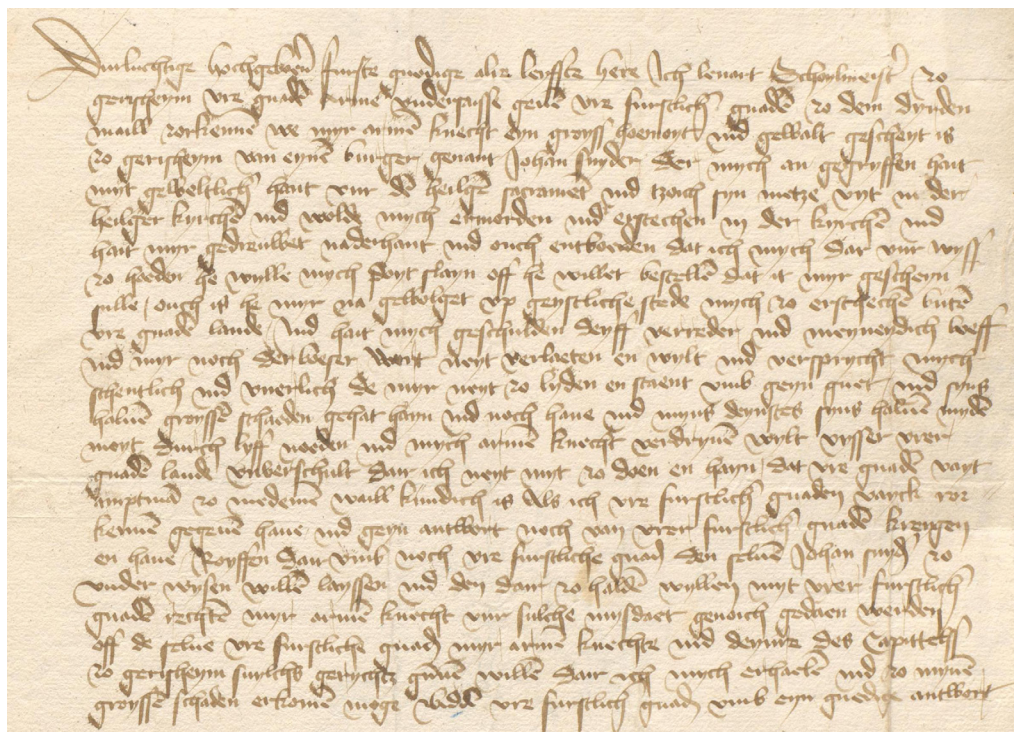 Durluchtige hochgeboren furste gnedige alre lieffste here Ich lenart Scholmeister zo
gerisheym vre gnaden arme vndersaisse geuen vre furstlicher gnaden zo dem dyrden
maill zorkennen we myr armen knecht eyn groyss hoemoyt ind gewalt gescheyt is
zo gerisheym van eynen burger genant Johan snyder der mych an gegryffen hait
myt geweltlicher hant vur dem heilgen sacrament ind tzoich syn metze vyt in der
heilger kyrchen ind wolde mych ermorden ind erstechen in der kyrchen ind
hait myr gedreuwet naderhant ind ouch entboeden dat ich mych dar vur wyss
zo hoeden he wylle mych doyt slayn off he willet bestellen dat it myr gescheyn
sulle, ouch is he myr na gewolget vp geystliche stede mych zo erstechen buten
vre gnaden lande, Ind hait mych geschulden deyff verreder ind meyneydich boeff
ind myr noch derbeser wort neyt verlaeten en wylt ind versprycht mych
schentlich ind vnerlich de myr neyt zo lyden en staent vmb geyn guet, ind syns
haluen groyssen schaeden gehat hayn ind noch haue ind myns deynstes syns haluen myden
moyt durch lyffs noeden ind mych armen knecht verdryuen wylt vysser vrer
gnaden lande vnuerschult dair ich neyt myt zo doen en hayn, dat vre gnaden vayt
amptman zo medemen waill kundich is Als ich vre furstlicher gnaden varck zor
kennen gegeuen haue ind geyn antwort noch van vrer furstlicher gnaden kregen
en haue Royffen dar vmb noch vre furstliche gnaden den seluen Johan snyder zo
vnder wysen willen layssen ind den dair zo halden wyllen myt vrer furstlicher
gnaden rechten myr armen knecht vur sulche mysdaet genoich gedaen werden
off de selue vre furstliche gnaden myr armen knechte ind deynre des Capittels
zo gerisheym sulchs gerychtz gunnen willen dair ich mych erhaelen ind zo mynen
groyssen schaden erkomen moge Bidde vre furstlich gnaden vmb eyn gnedige antwort